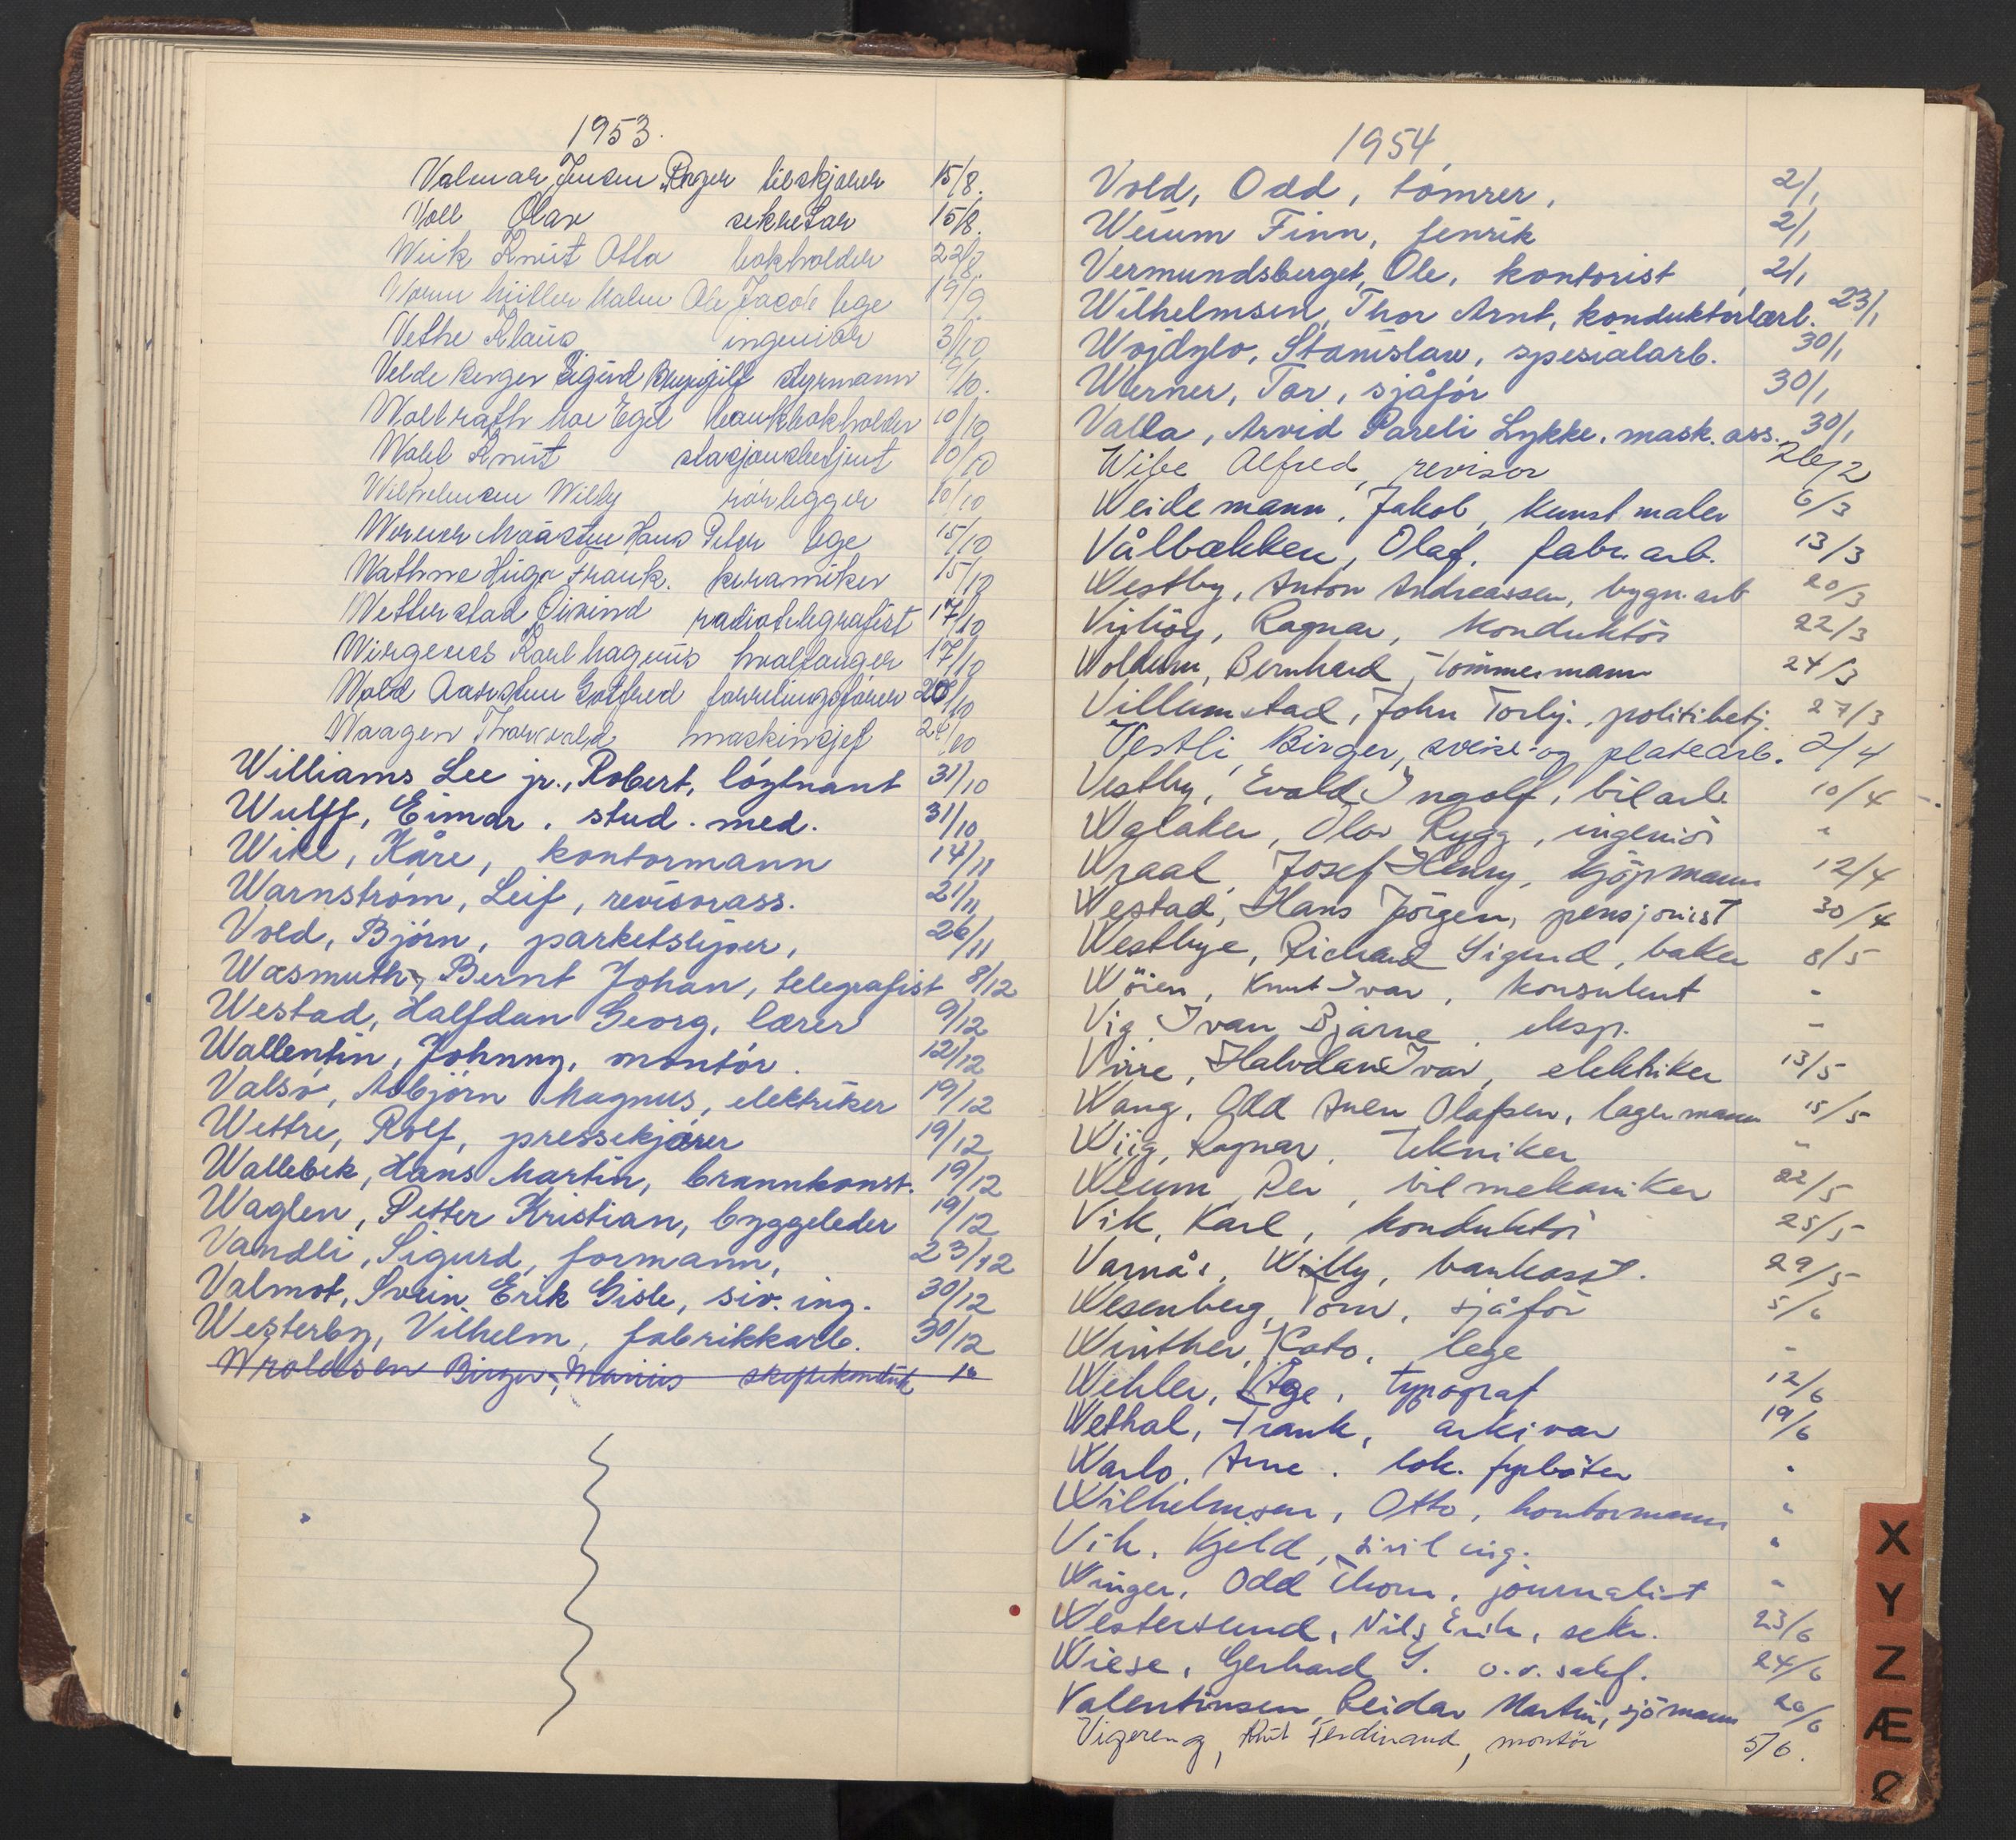 1953.
Valmar Jensen Roger 15/8.
Voll Olav sekretær 15/8.
Weik Knut Otto bokholder 22/8.
Worm Müller Ole Jacob lege 19/9.
Vethe Klaus ingeniør 3/10
Velde Sigurd styrmann 9/10.
Wollrath Moe Egil bankbokholder 10/10
Wahl Knut stasjonsbetjent 10/10
Wilhelmsen Willy rørlegger 10/10
Werner Hans Peter lege 15/10
Wathne Hugo Frank. keramiker 15/10
Wetterstad Øivind radiotelegrafist 17/10
Wirgenes Karl Magnus hvalfanger 17/10
Wold Gotfred forretningsfører 20/10
Waagen Thorvald maskinsjef 24/10
Williams Lee jr., Robert, löytnant 31/10
Wulff, Eimar, stud. med. 31/10
Wike, Kåre, kontormann 14/11
Warnström, Leif, revisorass. 21/11
Vold, Björn, parketsliper, 26/11
Wasmuth, Bernt Johan, telegrafist 8/12
Westad, Halfdan Georg, lærer 9/12
Wallentin, Johnny, montör. 12/12
Valsö, Asbjörn Magnus, elektriker 19/12
Wettre, Rolf, pressekjører 19/12
Wallebek, Hans Martin, brannkonst. 19/12
Waglen, Petter Kristian, byggeleder 19/12
Vandli, Sigurd, formann, 23/12
Valmot, Svein Erik Gisle, siv. ing. 30/12
Westerby, Vilhelm, fabrikkarb. 30/12
Wroldsen Birger, Marius
1954.
Vold, Odd, tömrer, 2/1
Weium Finn, fenrik 2/1
Vermundsberget, Ole, kontorist 2/1
Wilhelmsen, Thor Arnt, konduktörlærl. 23/1
Wojdylo, Stanislaw, spesialarb. 30/1
Werner, Tor, sjåför 30/1
Valla, Arvid Pareli Lykke, mask. ass. 30/1
Wibe Alfred, revisor
Weidemann, Jakob, kunstmaler 6/3
Vålbækken, Olaf, fabr. arb. 13/3
Westby, Anton Andreassen, bygn. arb 20/3
Ragnar, konduktör 22/3
Woldum, Bernhard, tömmermann 24/3
Villumstad, John Torbj., politibetj. 27/3
Vestli, Birger, sveise- og platearb. 2/4
Vestby, Evald Ingolf, bilarb 10/4
Wglaker, Olav Rygg, ingeniör "
Wraal, Josef Henry, kjöpmann 12/4
Westad, Hans Jörgen, pensjonist 30/4
Westbye, Richard Sigurd, baker 8/5
Wöien, Knut Ivar, konsulent -
Vig Ivan Bjarne, eksp. -
Virre, Halvdan Ivar, elektriker 13/5
Wang, Odd Olafsen, lagermann 15/5
Wiig, Ragnar, tekniker "
Weium Per, bilmekaniker 22/5
Vik, Karl, konduktör 25/5
Varnås, Willy, bankasst. 29/5
Wesenberg, Tom, sjåför 5/6
Winther, Kato, lege -
Wehler, Åge, typograf 12/6
Wethal, Frank, arkivar 19/6
Warlo, Arne. lok. fyrböter "
Wilhelmsen, Otto, kontormann "
Vik, Kjeld, sivil ing. "
Winger, Odd Thom, journalist "
Westersund, Nils Erik, sekr. 23/6
Wiese, Gerhard S. o.r. sakf. 24/6
Valentinsen, Reidar Martin, sjömann 26/6
Vigereng, Knut Ferdinand, montör 5/6.
X
Y
Z
Æ
Ø